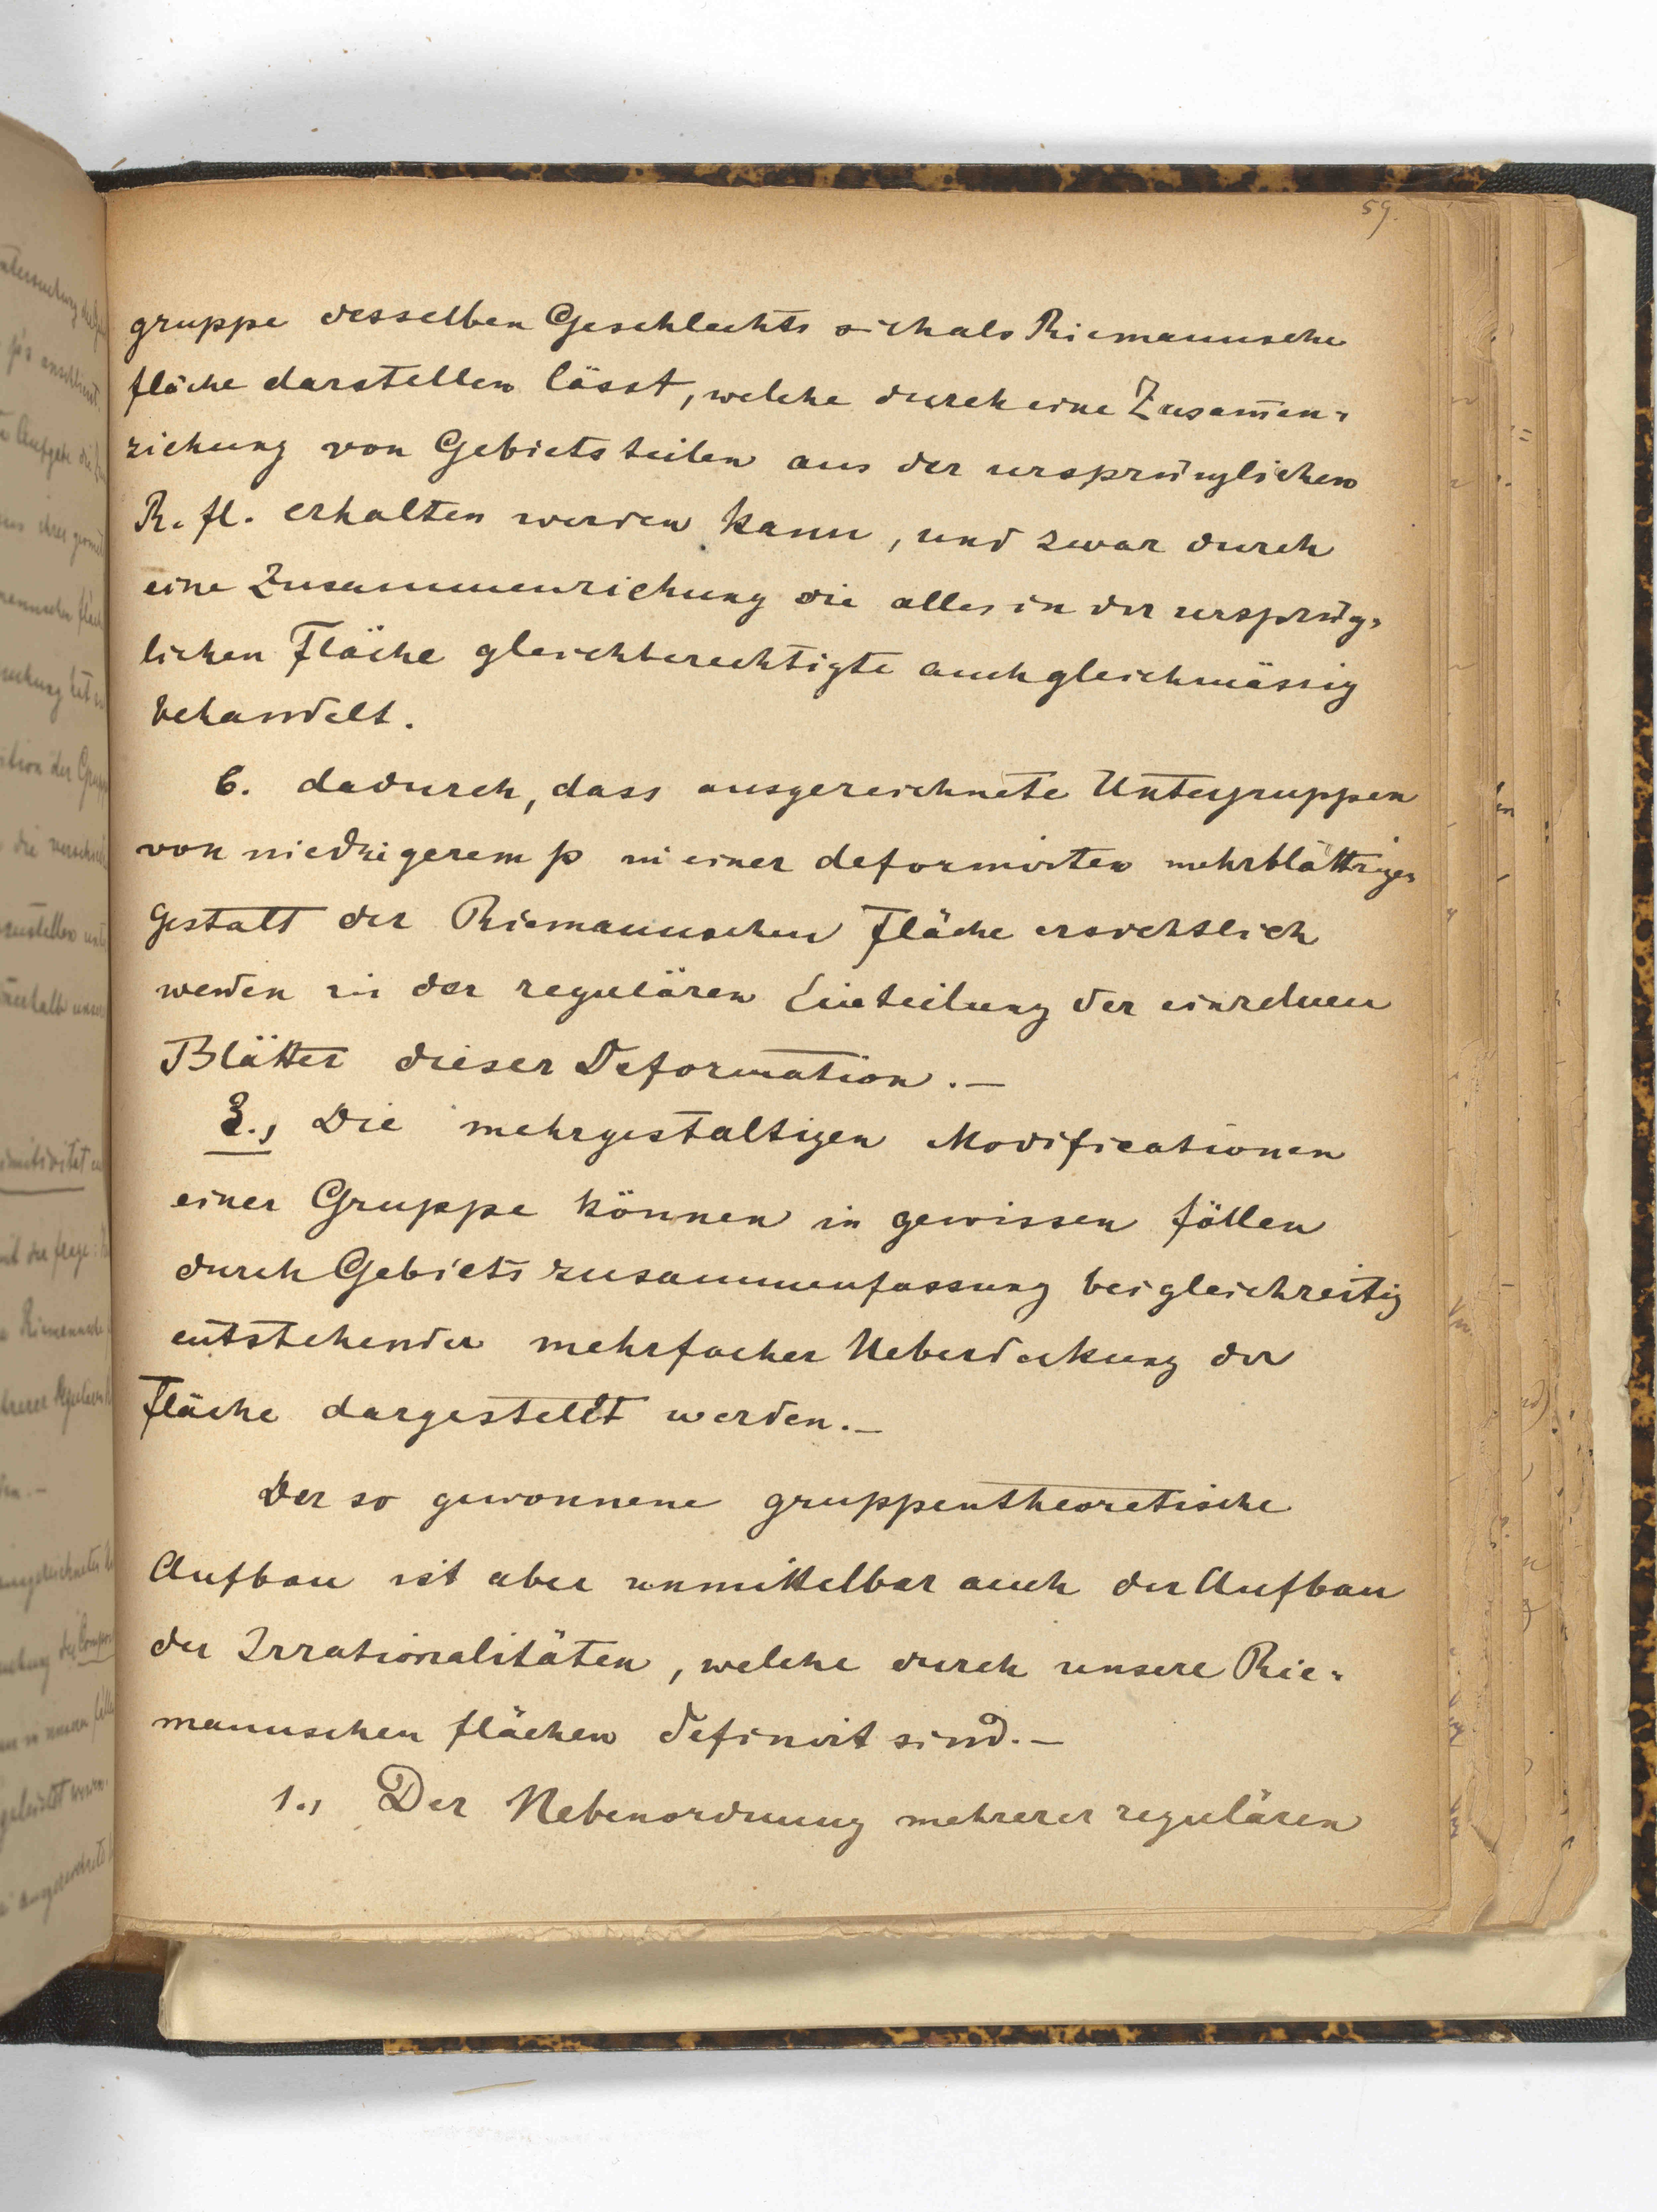 59.
gruppe desselben Geschlechts sich als Riemannsche
fläche darstellen lässt, welche durch eine Zusam̄en-
ziehung von Gebietsteilen aus der ursprünglichen
R. fl. erhalten werden kann, und zwar durch
eine Zusammenziehung die alles in der ursprüng-
lichen Fläche gleichberechtigte auch gleichmässig
behandelt.
6. dadurch, dass ausgezeichnete Untergruppen
von niedrigerem p in einer deformirten mehrblättrigen
Gestalt der Riemannschen Fläche ersichtlich
werden in der regulären Einteilung der einzelnen
Blätter dieser Deformation.—
3., Die mehrgestaltigen Modificationen
einer Gruppe können in gewissen fällen
durch Gebietszusammenfassung bei gleichzeitig
entstehender mehrfacher Ueberdeckung der
Fläche dargestellt werden.—
Der so gewonnene gruppentheoretische
Aufbau ist aber unmittelbar auch der Aufbau
der Irrationalitäten, welche durch unsere Rie-
mannschen flächen definirt sind.—
1., Der Nebenordnung mehrerer regulären